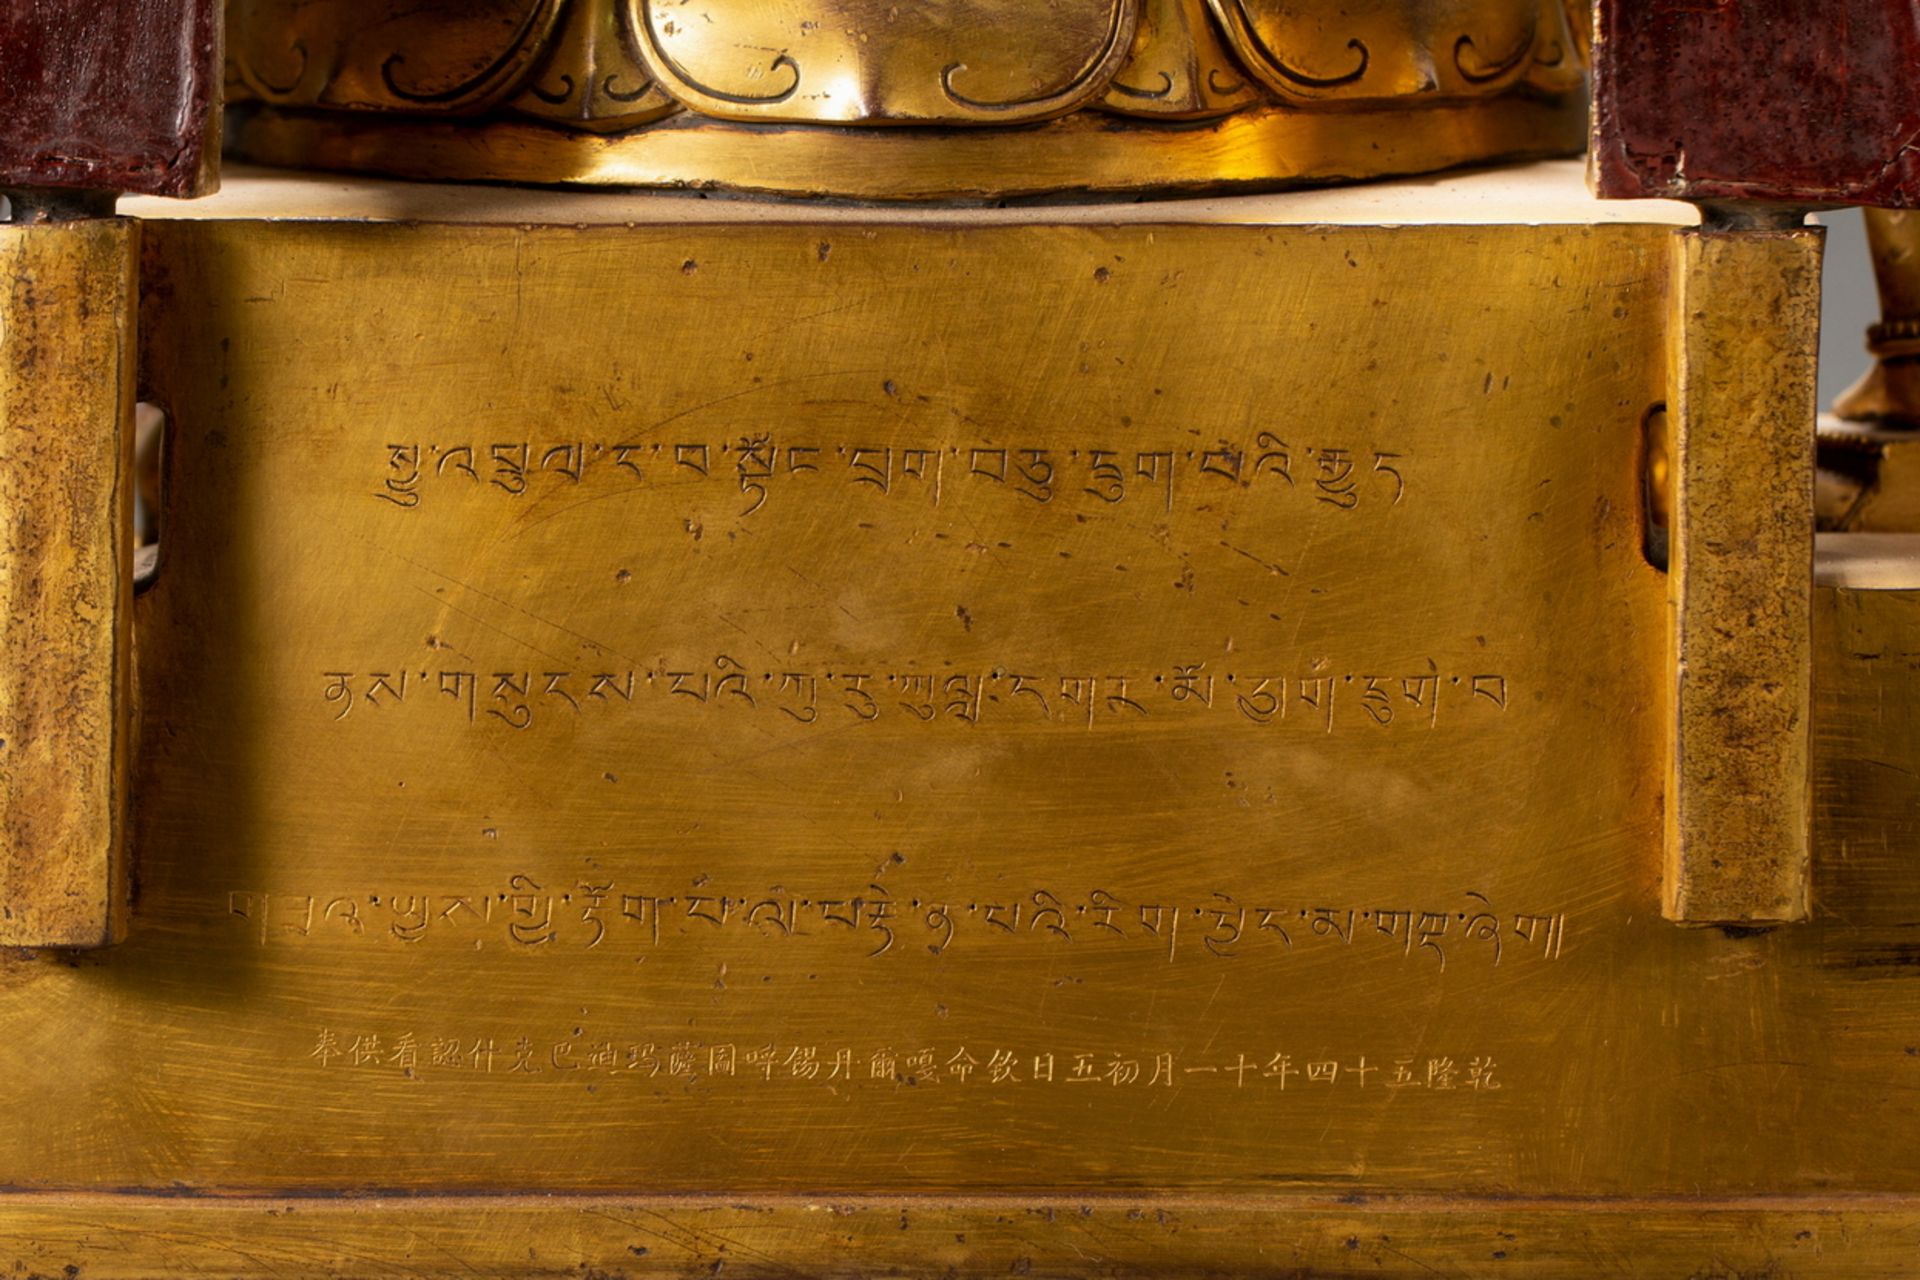 སྒྱུ་འཕྲུལ་ད་བ་སྟོང་ཕྲག་བཅུ་དྲུག་པའི་རྒྱུད
ནས་གསུངས་པའི་ཀུ་རུ་ཀུལླ་དཀར་མོ་ཕྱག་དྲུག་པ
གྱི་རྟོག་པ་ལེ་པའི་རིག་བྱེད་མ་
乾隆五十四年十一月初五日欽命嘎爾丹錫呼圖薩瑪迪巴克什認看供奉